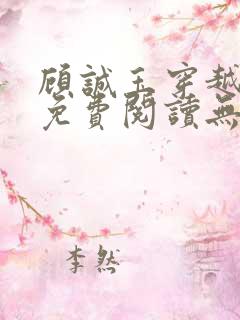 顾誠玉穿越
免費閱讀無
李然